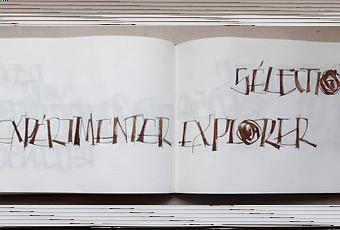 SÉLECTIO
EXPÉRIMENTER EXPLORER